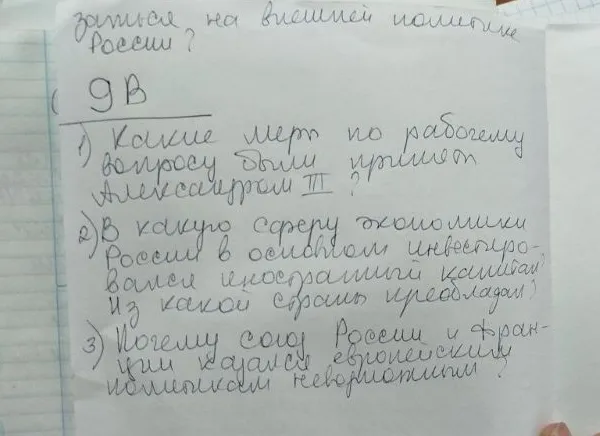 заться на внешней политике
России?
9В
1) Какие меры по рабочему
вопросу были приняты
Александром III ?
2) В какую сферу экономики
России в основном инвестиро-
вался иностранный капитал?
Из какой страны преобладал?
3) Почему союз России и Фран-
ции казался европейским
политикам невозможным ?